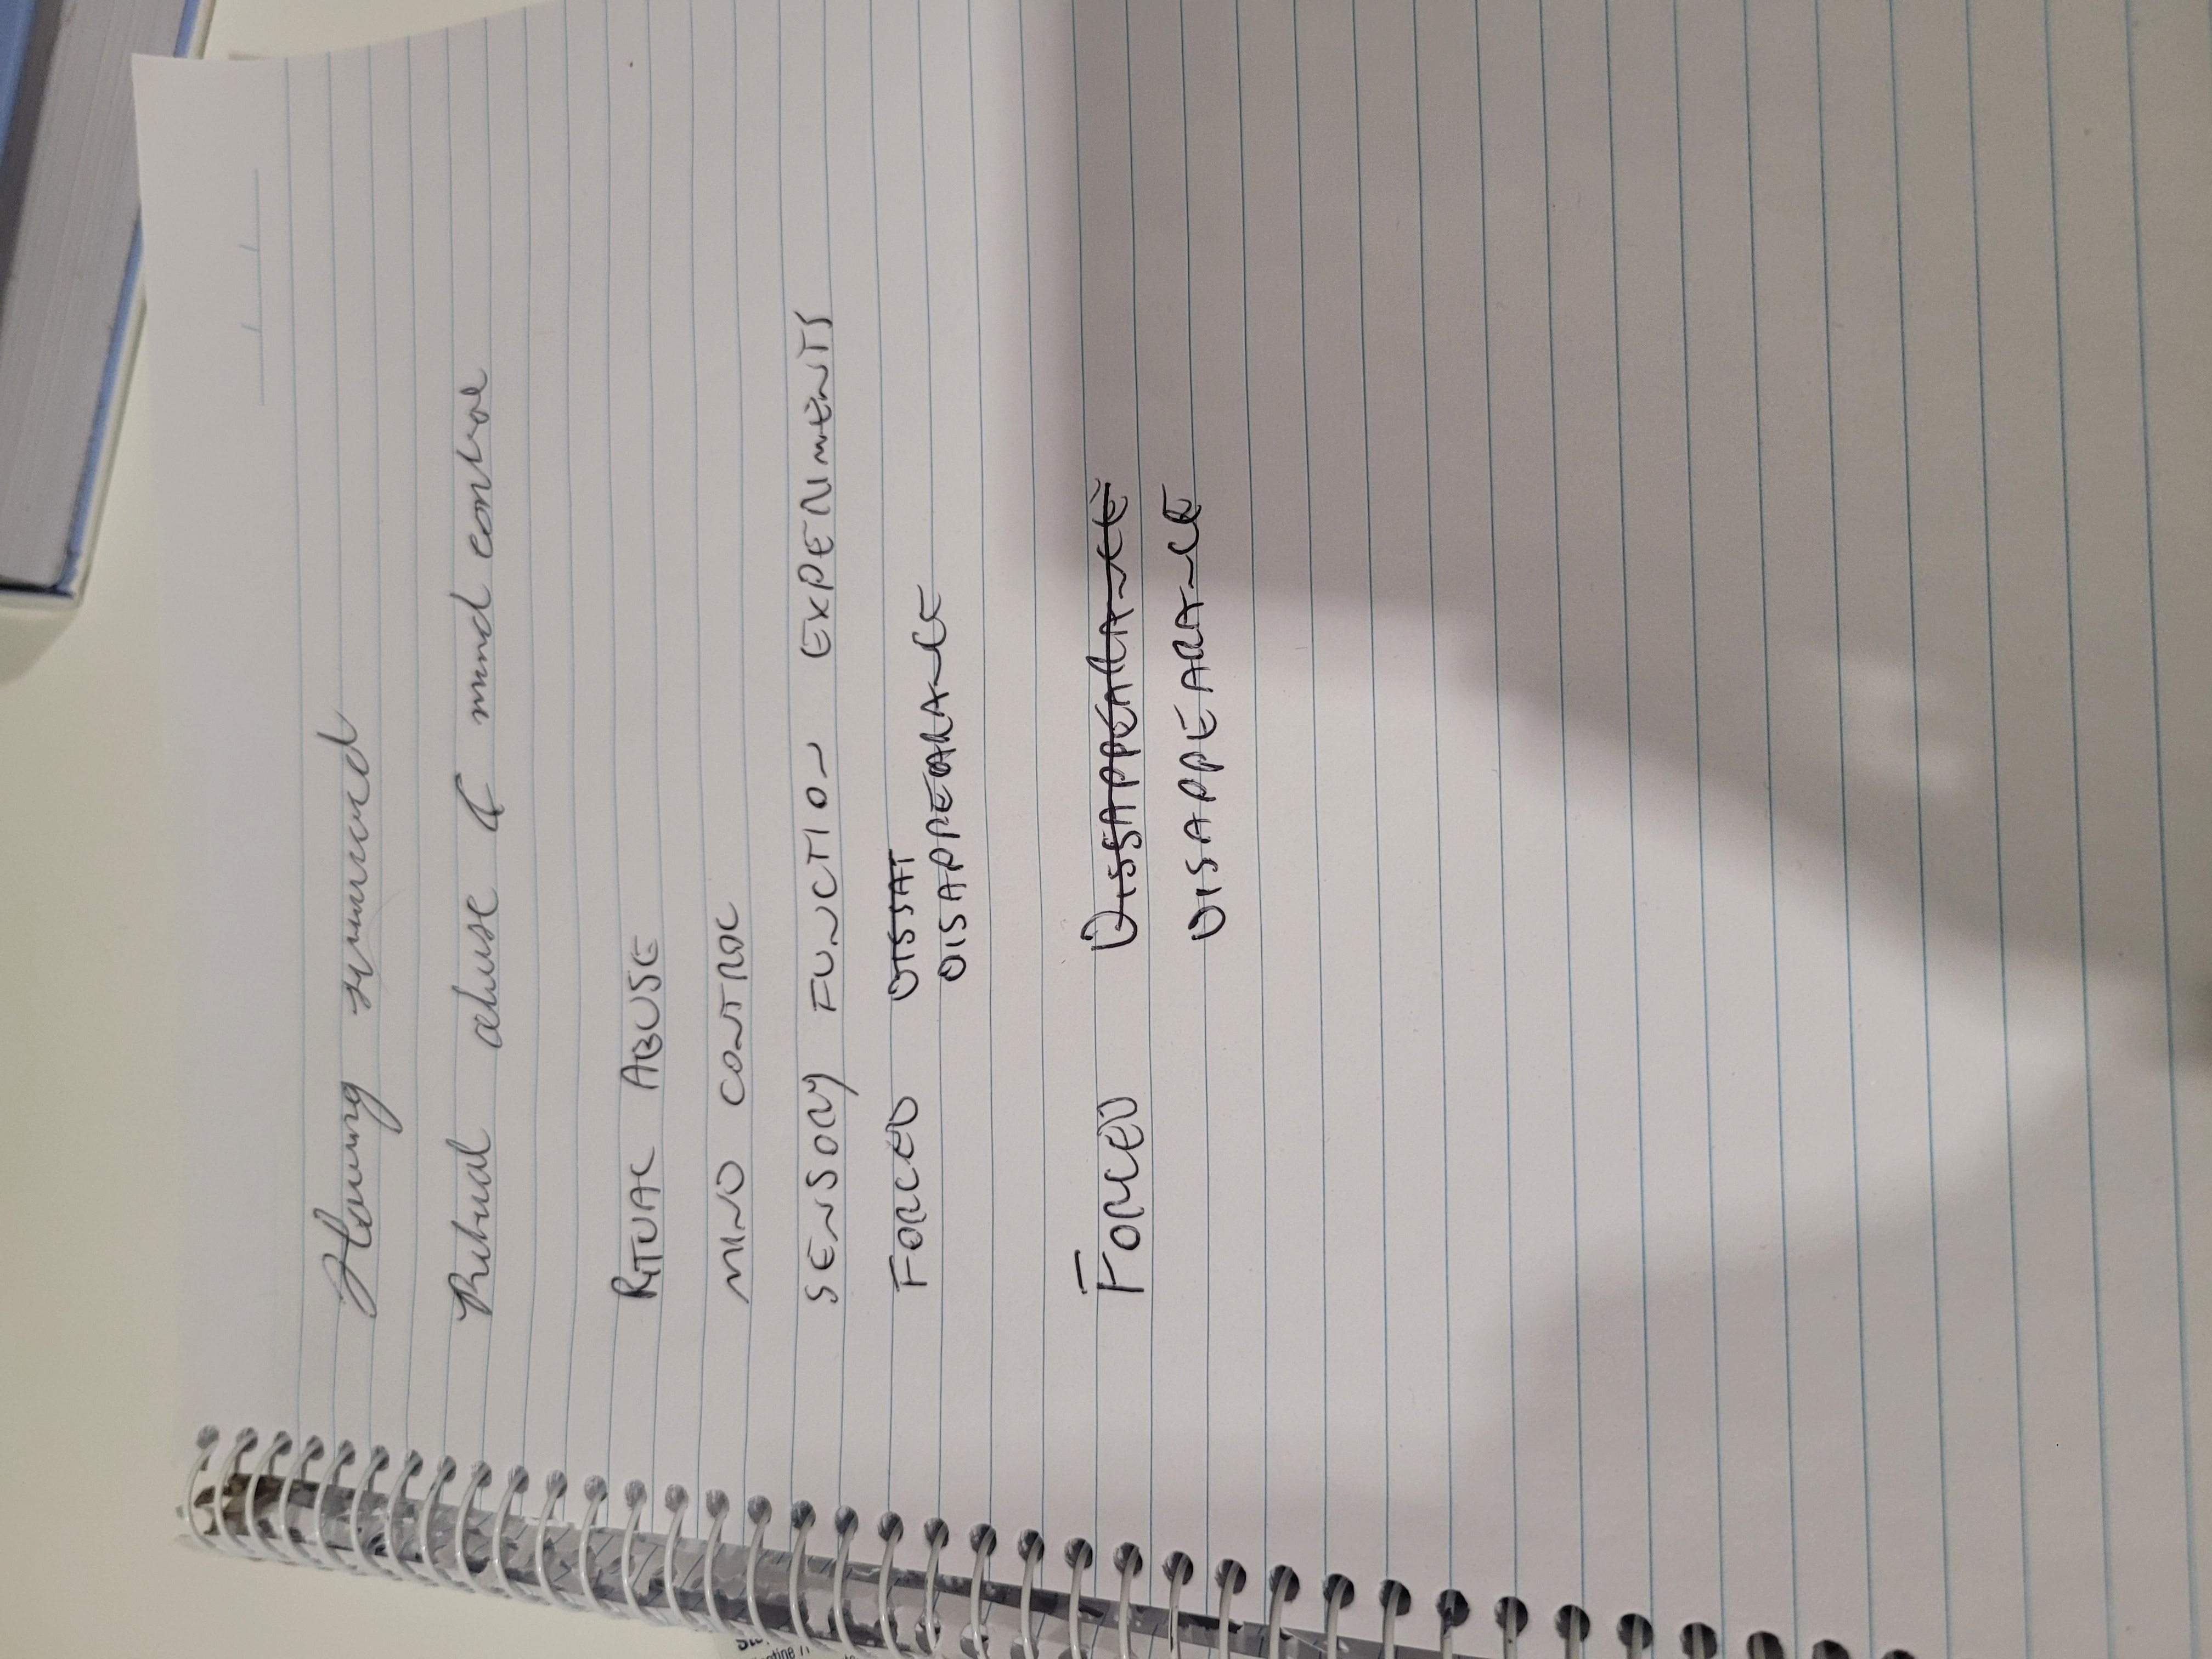 Having survived
Ritual abuse & mind control
RITUAL ABUSE
MIND CONTROL
SENSORY FUNCTION EXPERIMENTS
FORCED DISSAI
DISAPPEARANCE
FORCED DISSAPPEARANCE
DISAPPEARANCE